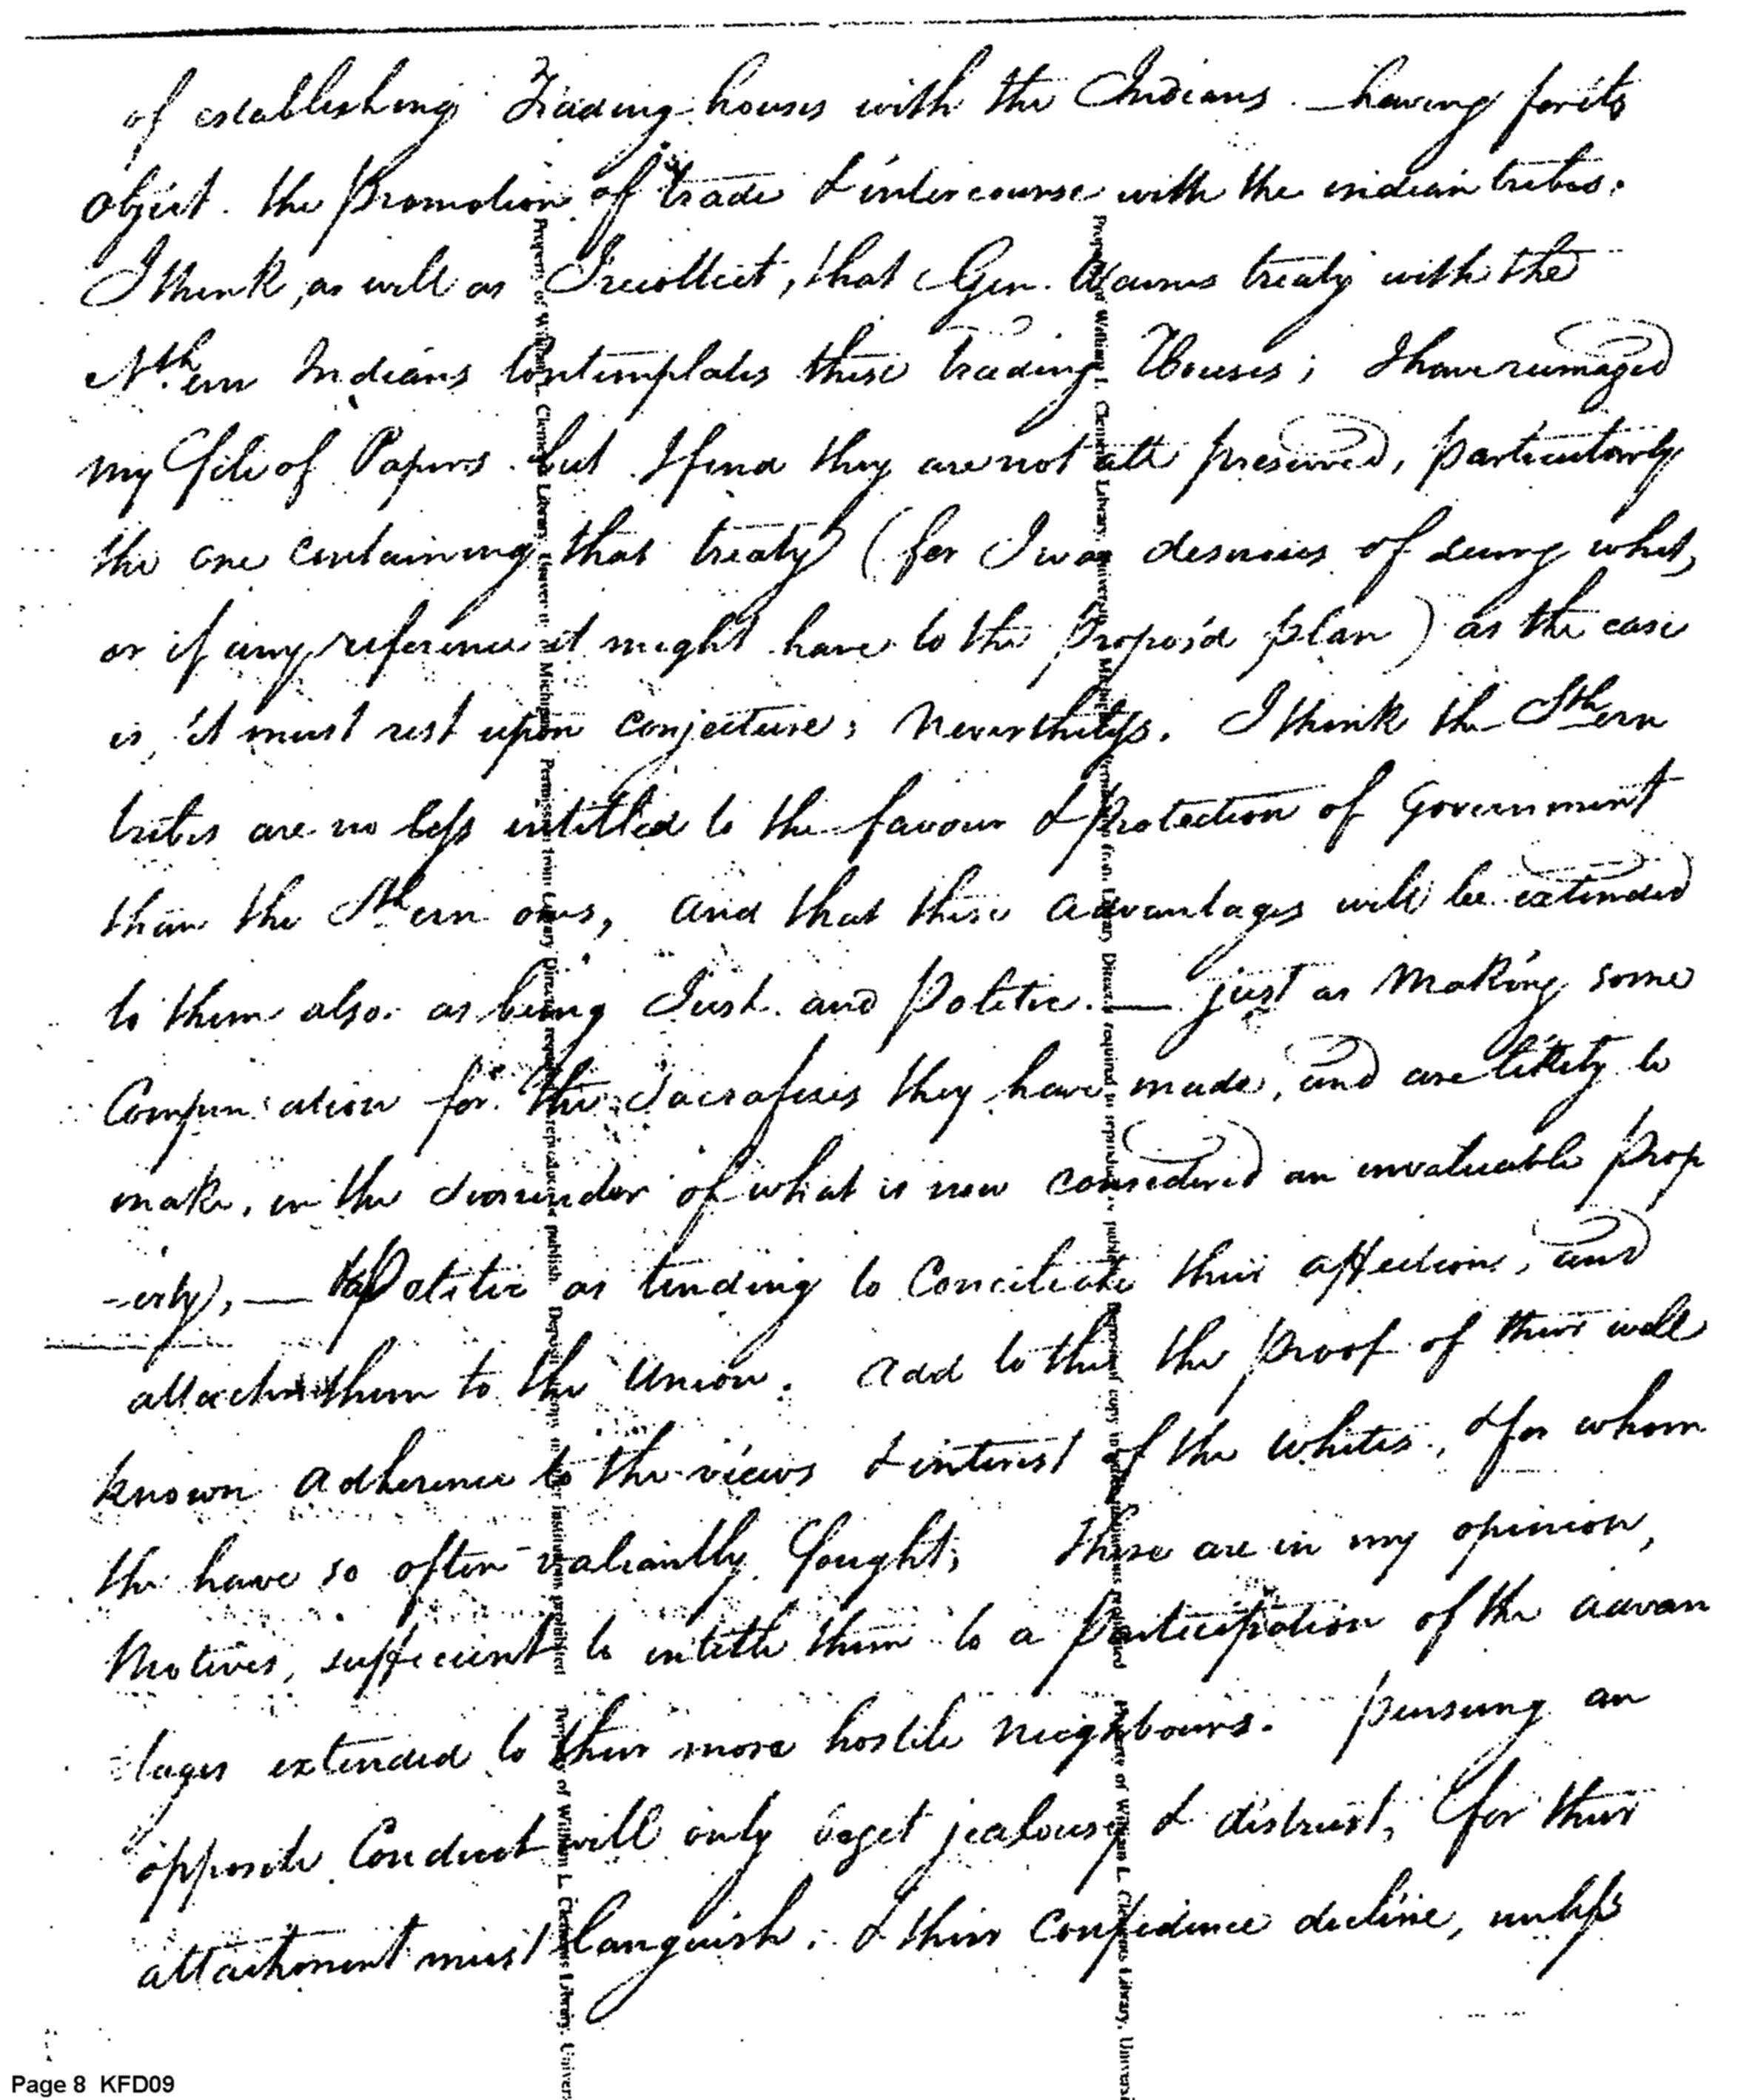 of establishing Trading houses with the Indians - having for its
object. the promotion of trade & intercourse with the indian tribes.
I think, as well as I recollect, that Gen. Waynes treaty with the
Nthern Indians Contemplates these trading Houses; I have rumaged
my file of Papers but I find they are not all preserved, particularly
the one containing that treaty (for I was desirous of seeing what,
or if any reference it might have to the propos'd plan) as the case
is, it must rest upon conjecture; Nevertheless. I think the Sthern
tribes are no less intitled to the favour & protection of Government
than the Nthern ones, and that these advantages will be extended
to them also. as being Just. and Politic. — just as Making some
Compensation for the Sacrafises they have made, and are likely to
make, in the surrender of what is now considered an invaluable prop
-erty, — Politic as tending to Conciliate their affections, and
attach them to the Union. Add to this the proof of their well
known adherence to the views & interest of the whites, & for whom
the have so often valiantly fought; These are in my opinion,
Motives, sufficient to intitle them to a participation of the advan
-tages extended to their more hostile neighbours. pursuing an
opposite Conduct will only beget jealousy & distrust, for their
attachment must languish, & their Confidence decline, unless
Property of William L. Clements Library, University of Michigan. Permission from Library Director required to reproduce or publish. Deposit of copy in other institutions prohibited
Property of William L. Clements Library, Univers
Property of William L. Clements Library, University of Michigan. Permission from Library Director required to reproduce or publish. Deposit of copy in other institutions prohibited
Property of William L. Clements Library, Universi
Page 8 KFD09